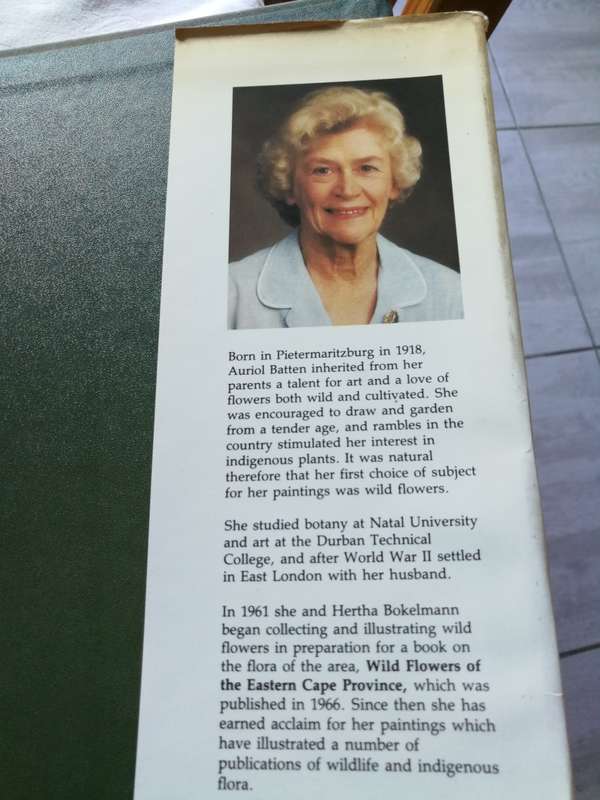 Born in Pietermaritzburg in 1918,
Auriol Batten inherited from her
parents a talent for art and a love of
flowers both wild and cultivated. She
was encouraged to draw and garden
from a tender age, and rambles in the
country stimulated her interest in
indigenous plants. It was natural
therefore that her first choice of subject
for her paintings was wild flowers.
She studied botany at Natal University
and art at the Durban Technical
College, and after World War II settled
in East London with her husband.
In 1961 she and Hertha Bokelmann
began collecting and illustrating wild
flowers in preparation for a book on
the flora of the area, Wild Flowers of
the Eastern Cape Province, which was
published in 1966. Since then she has
earned acclaim for her paintings which
have illustrated a number of
publications of wildlife and indigenous
flora.